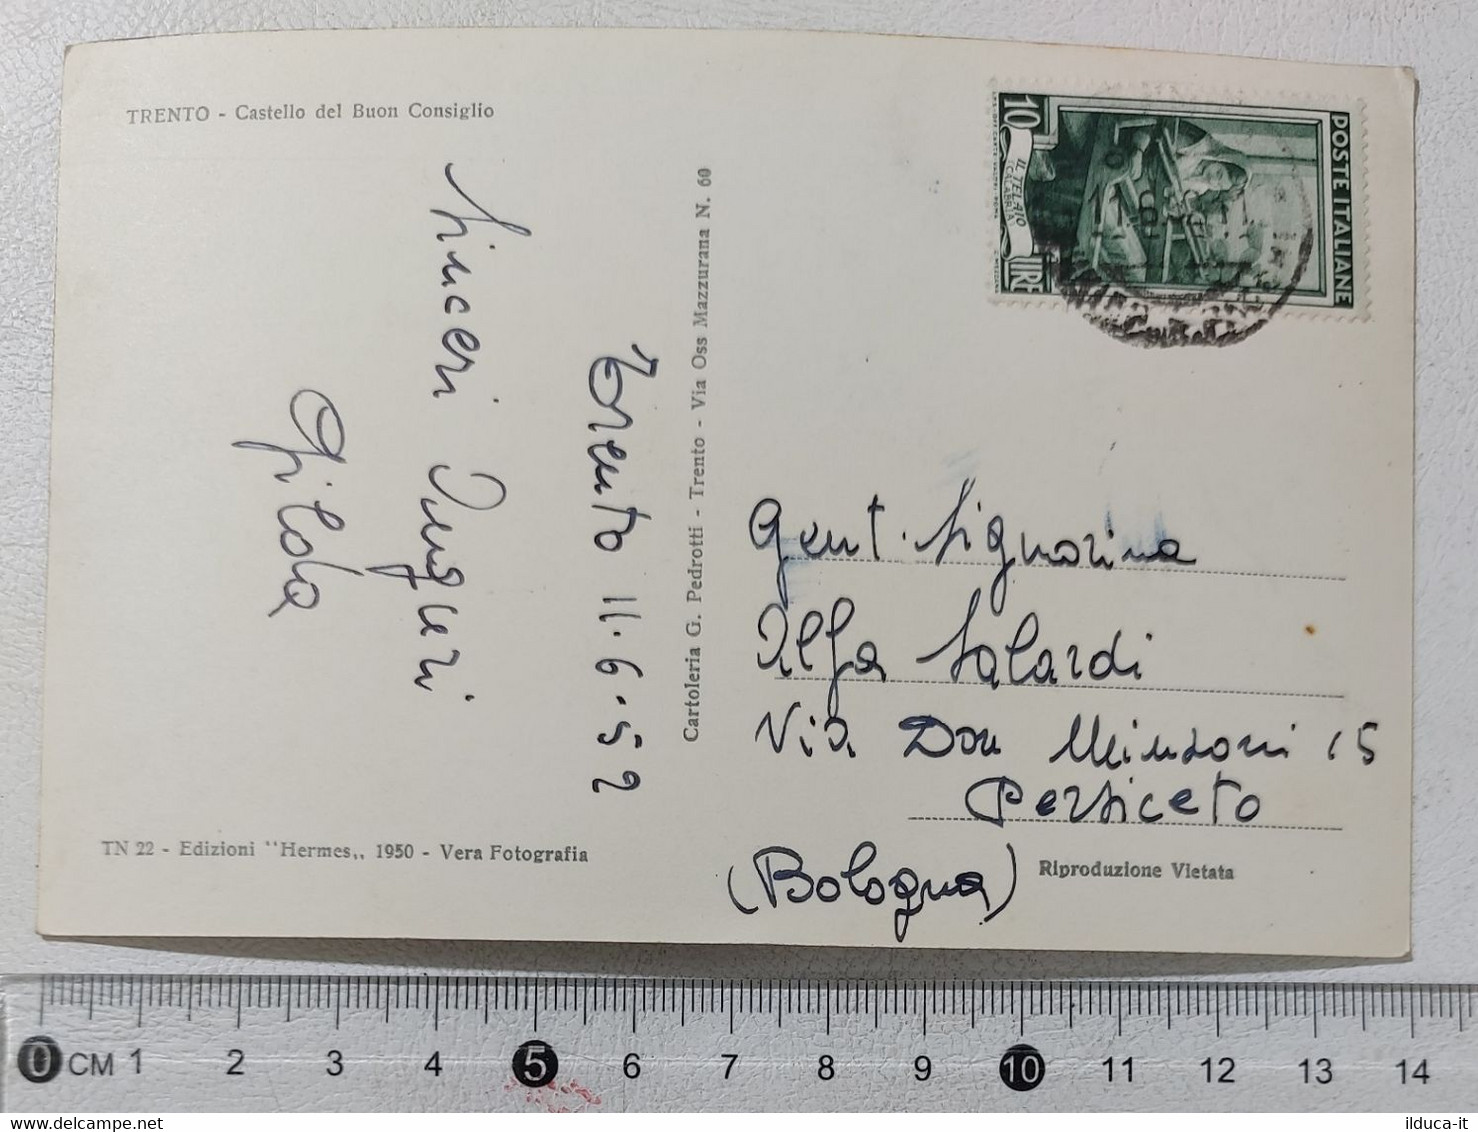 TRENTO - Castello del Buon Consiglio
Trento 11.6.52
Sinceri Auguri
Gilda
TN 22 - Edizioni "Hermes,, 1950 - Vera Fotografia
Cartoleria G. Pedrotti - Trento - Via Oss Mazzurana N. 60
POSTE ITALIANE
10
LIRE
IL TELAIO
(CALABRIA)
Gent. Signorina
Alfa Salardi
Via Don Minzoni 15
Persiceto
(Bologna)
Riproduzione Vietata
0 CM 1 2 3 4 5 6 7 8 9 10 11 12 13 14
delcampe.net
ilduca-it